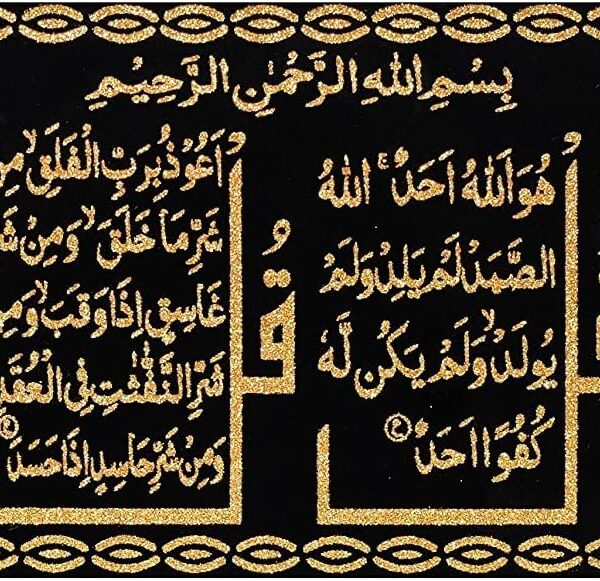 بِسْمِ اللهِ الرَّحْمٰنِ الرَّحِيْمِ
هُوَ اللهُ اَحَدٌ ۚ اَللهُ
الصَّمَدُ لَمْ يَلِدْ وَلَمْ
يُوْلَدْ وَلَمْ يَكُنْ لَّهٗ
كُفُوًا اَحَدٌ
قُلْ
اَعُوْذُ بِرَبِّ الْفَلَقِ مِنْ
شَرِّ مَا خَلَقَ وَمِنْ
غَاسِقٍ اِذَا وَقَبَ وَمِنْ
شَرِّ النَّفّٰثٰتِ فِى الْعُقَدِ
وَمِنْ شَرِّ حَاسِدٍ اِذَا حَسَدَ